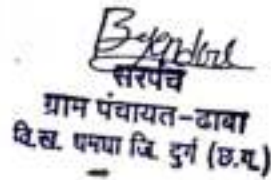 सरपंच
ग्राम पंचायत-ढाबा
वि.ख. धमधा जि. दुर्ग (छ.ग.)